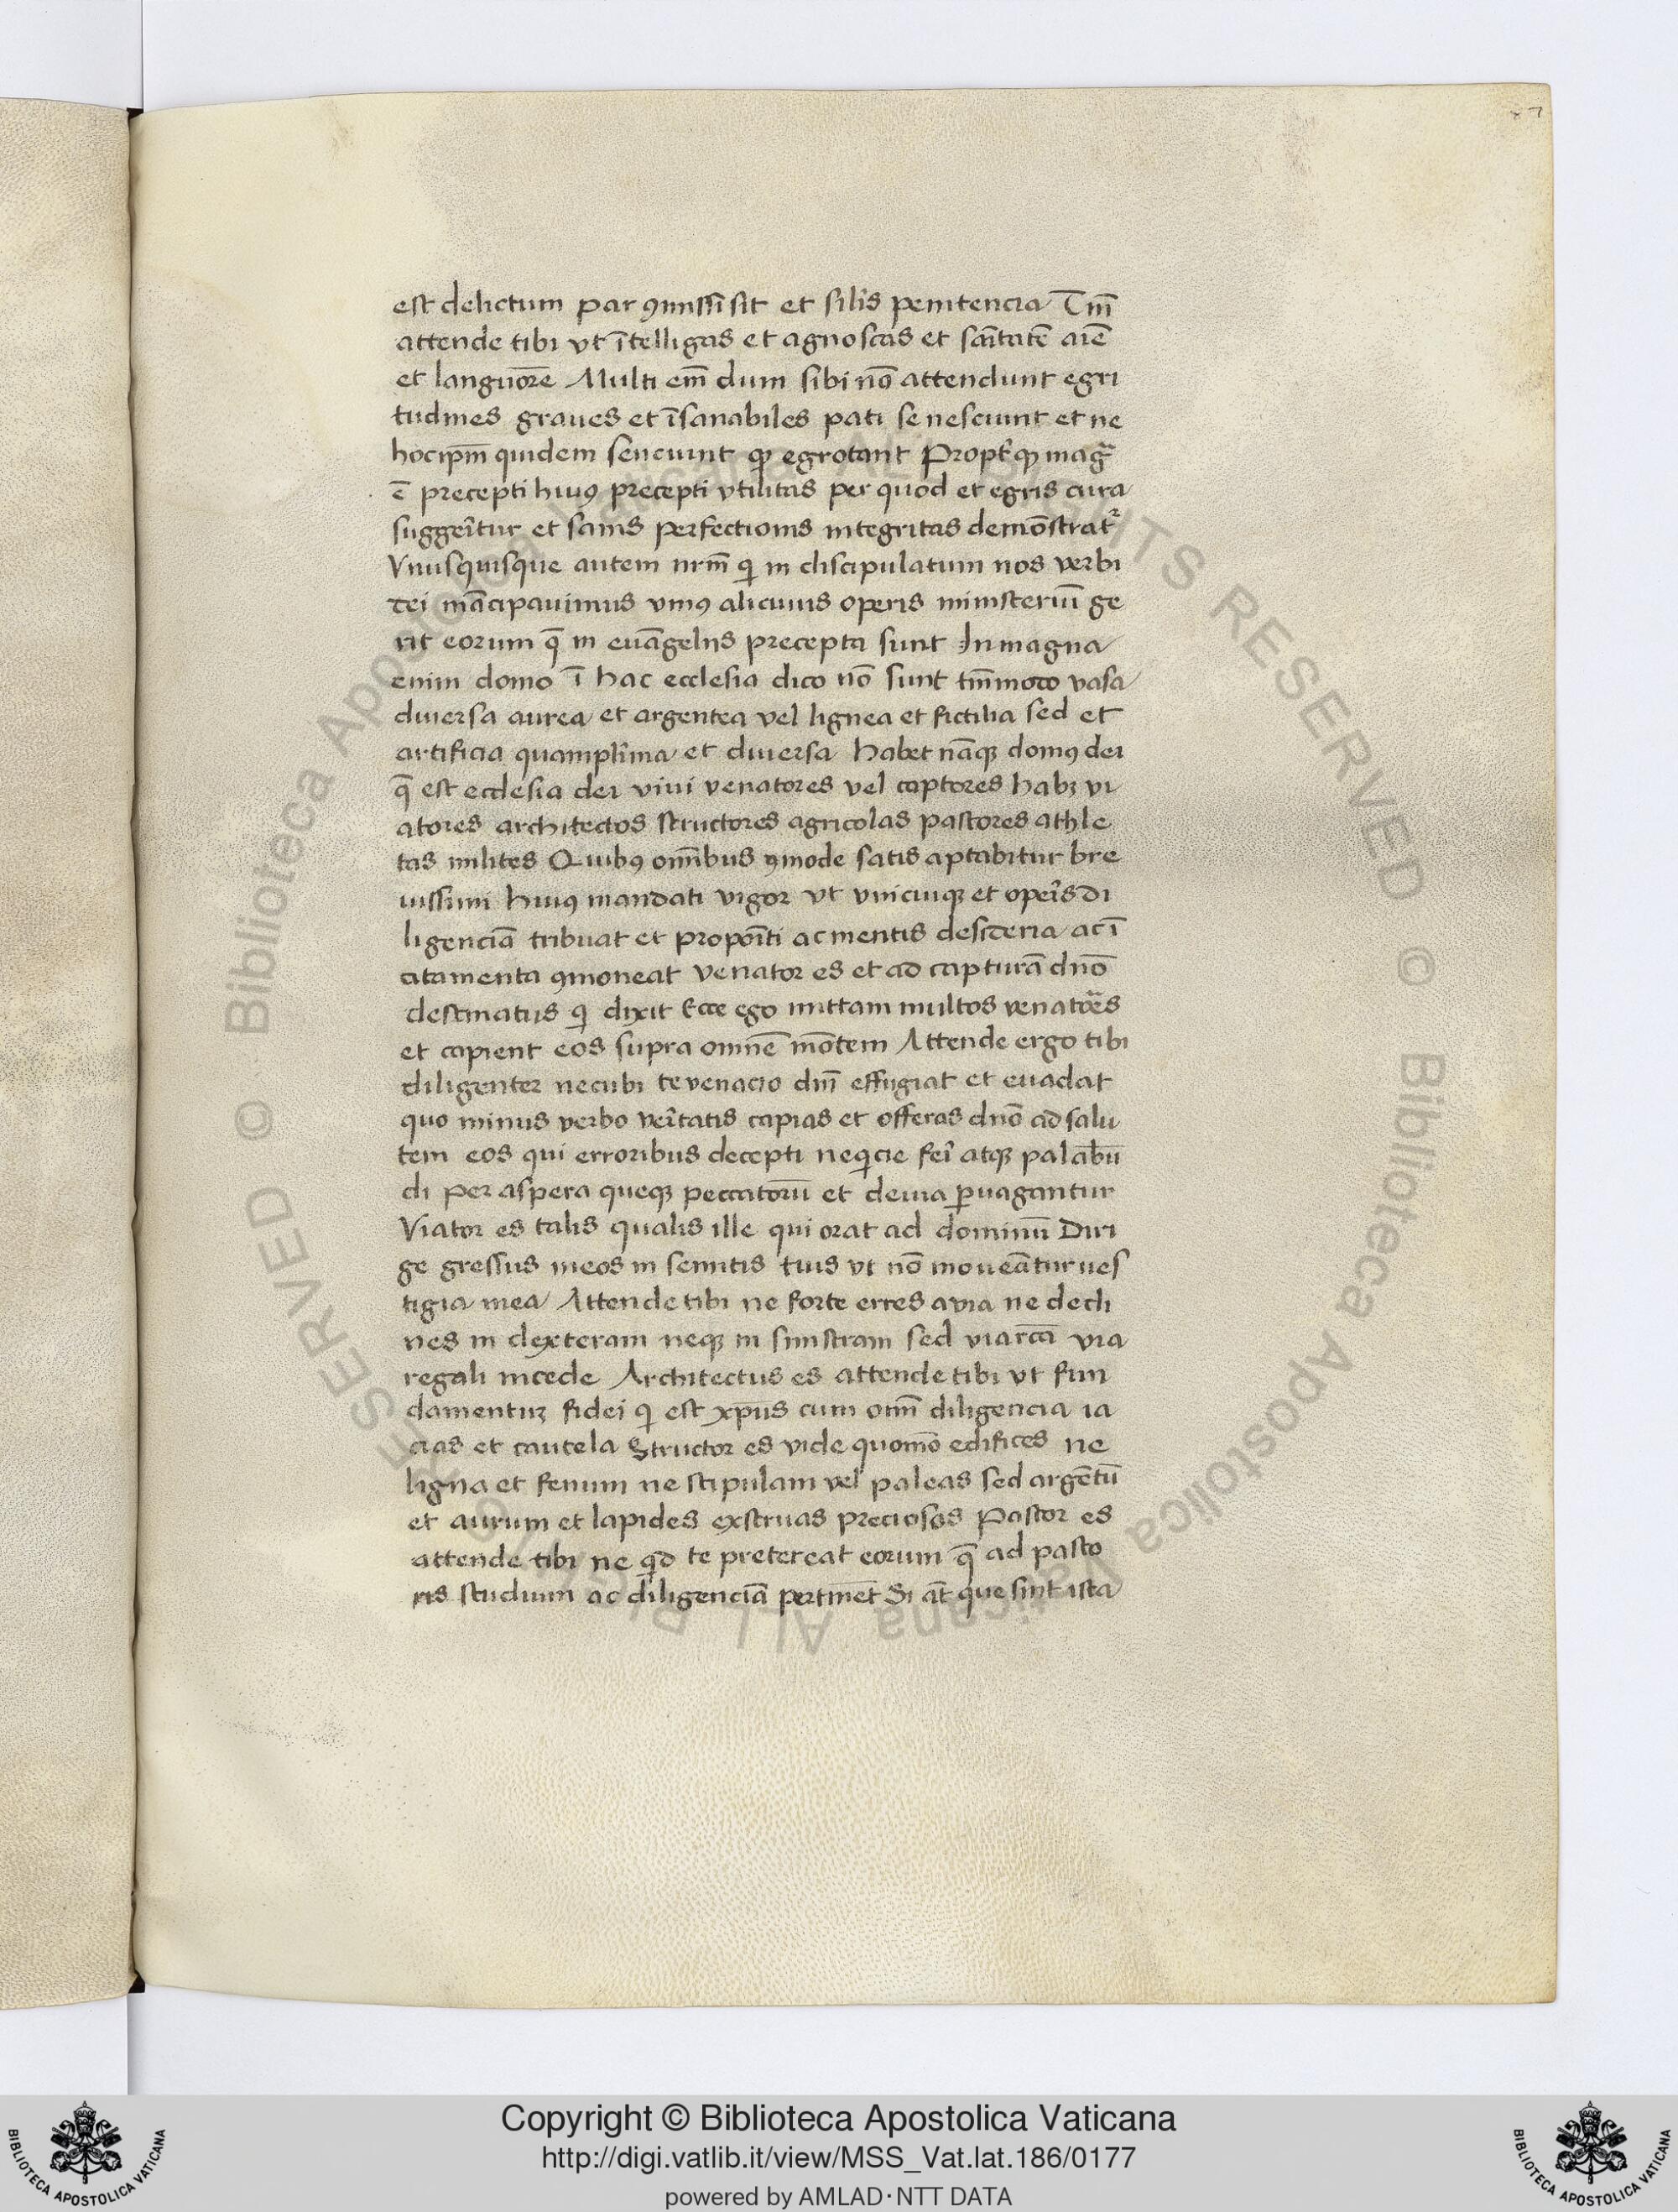 est delictum par ꝯmissi sit et sil̄is penitencia Tm̄
attende tibi vt ītelligas et agnoscas et san̄itatē aīē
et languorē Multi em̄ dum sibi nō attendunt egri
tudines graues et īsanabiles pati se nesciunt et ne
hoc ipm̄ quidem senciunt qꝫ egrotant Propt̄ qꝫ mag̃
ē precepti huiꝰ precepti vtilitas per quod et egris cura
suggerit̄ur et sanis perfectionis integritas demōstratᷣ
Vnusquisque autem nrm̄ qi in discipulatum nos verbi
dei mācipauimus vniꝰ alicuius operis ministeriū ge
rit eorum q̄ in euāgeliis precepta sunt In magna
enim domo ī hac ecclesia dico nō sunt tm̄modo vasa
diuersa aurea et argentea vel lignea et fictilia sed et
artificia quampl̄ima et diuersa habet nāqꝫ domꝰ dei
q̄ est ecclesia dei viui venatores vel captores habꝫ vi
atores architectos structores agricolas pastores athle
tas milites Quibꝰ om̄ibus ꝯmode satis aptabitur bre
uissimi huiꝰ mandati vigor vt vnicuiqꝫ et operīs di
ligenciā tribuat et propoīti ac mentis desideria ac ī
citamenta ꝯmoneat venator es et ad capturā dn̄o
destinatus qi dixit Ecce ego mittam multos venatores
et capient eos supra omnē mōtem Attende ergo tibi
diligenter necubi te venacio dm̄ effugiat et euadat
quo minus verbo verītatis capias et offeras dn̄o ad salu
tem eos qui erroribus decepti neqicie feī atqꝫ palabū
di per aspera queqꝫ peccatorū et deuia ꝑuagantur
Viator es talis qualis ille qui orat ad dominū Diri
ge gressus meos in semitis tuis vt nō moueātur ues
tigia mea Attende tibi ne forte erres a via ne decli
nes in dexteram neqꝫ in sinistram sed via rc̄a via
regali incede Architectus es attende tibi vt fun
damentuꝫ fidei qi est xp̄us cum om̄i diligencia ia
cias et cautela Structor es vide quomō edifices ne
ligna et fenum ne stipulam vel paleas sed argētū
et aurum et lapides exstruas preciosos Pastor es
attende tibi ne qid te pretereat eorum q̄ ad pasto
ris studium ac diligenciā pertinēt Si āt que sint ista
Copyright © Biblioteca Apostolica Vaticana
http://digi.vatlib.it/view/MSS_Vat.lat.186/0177
powered by AMLAD·NTT DATA
BIBLIOTECA APOSTOLICA VATICANA
BIBLIOTECA APOSTOLICA VATICANA
© Biblioteca Apostolica Vaticana ALL RIGHTS RESERVED
© Biblioteca Apostolica Vaticana ALL RIGHTS RESERVED